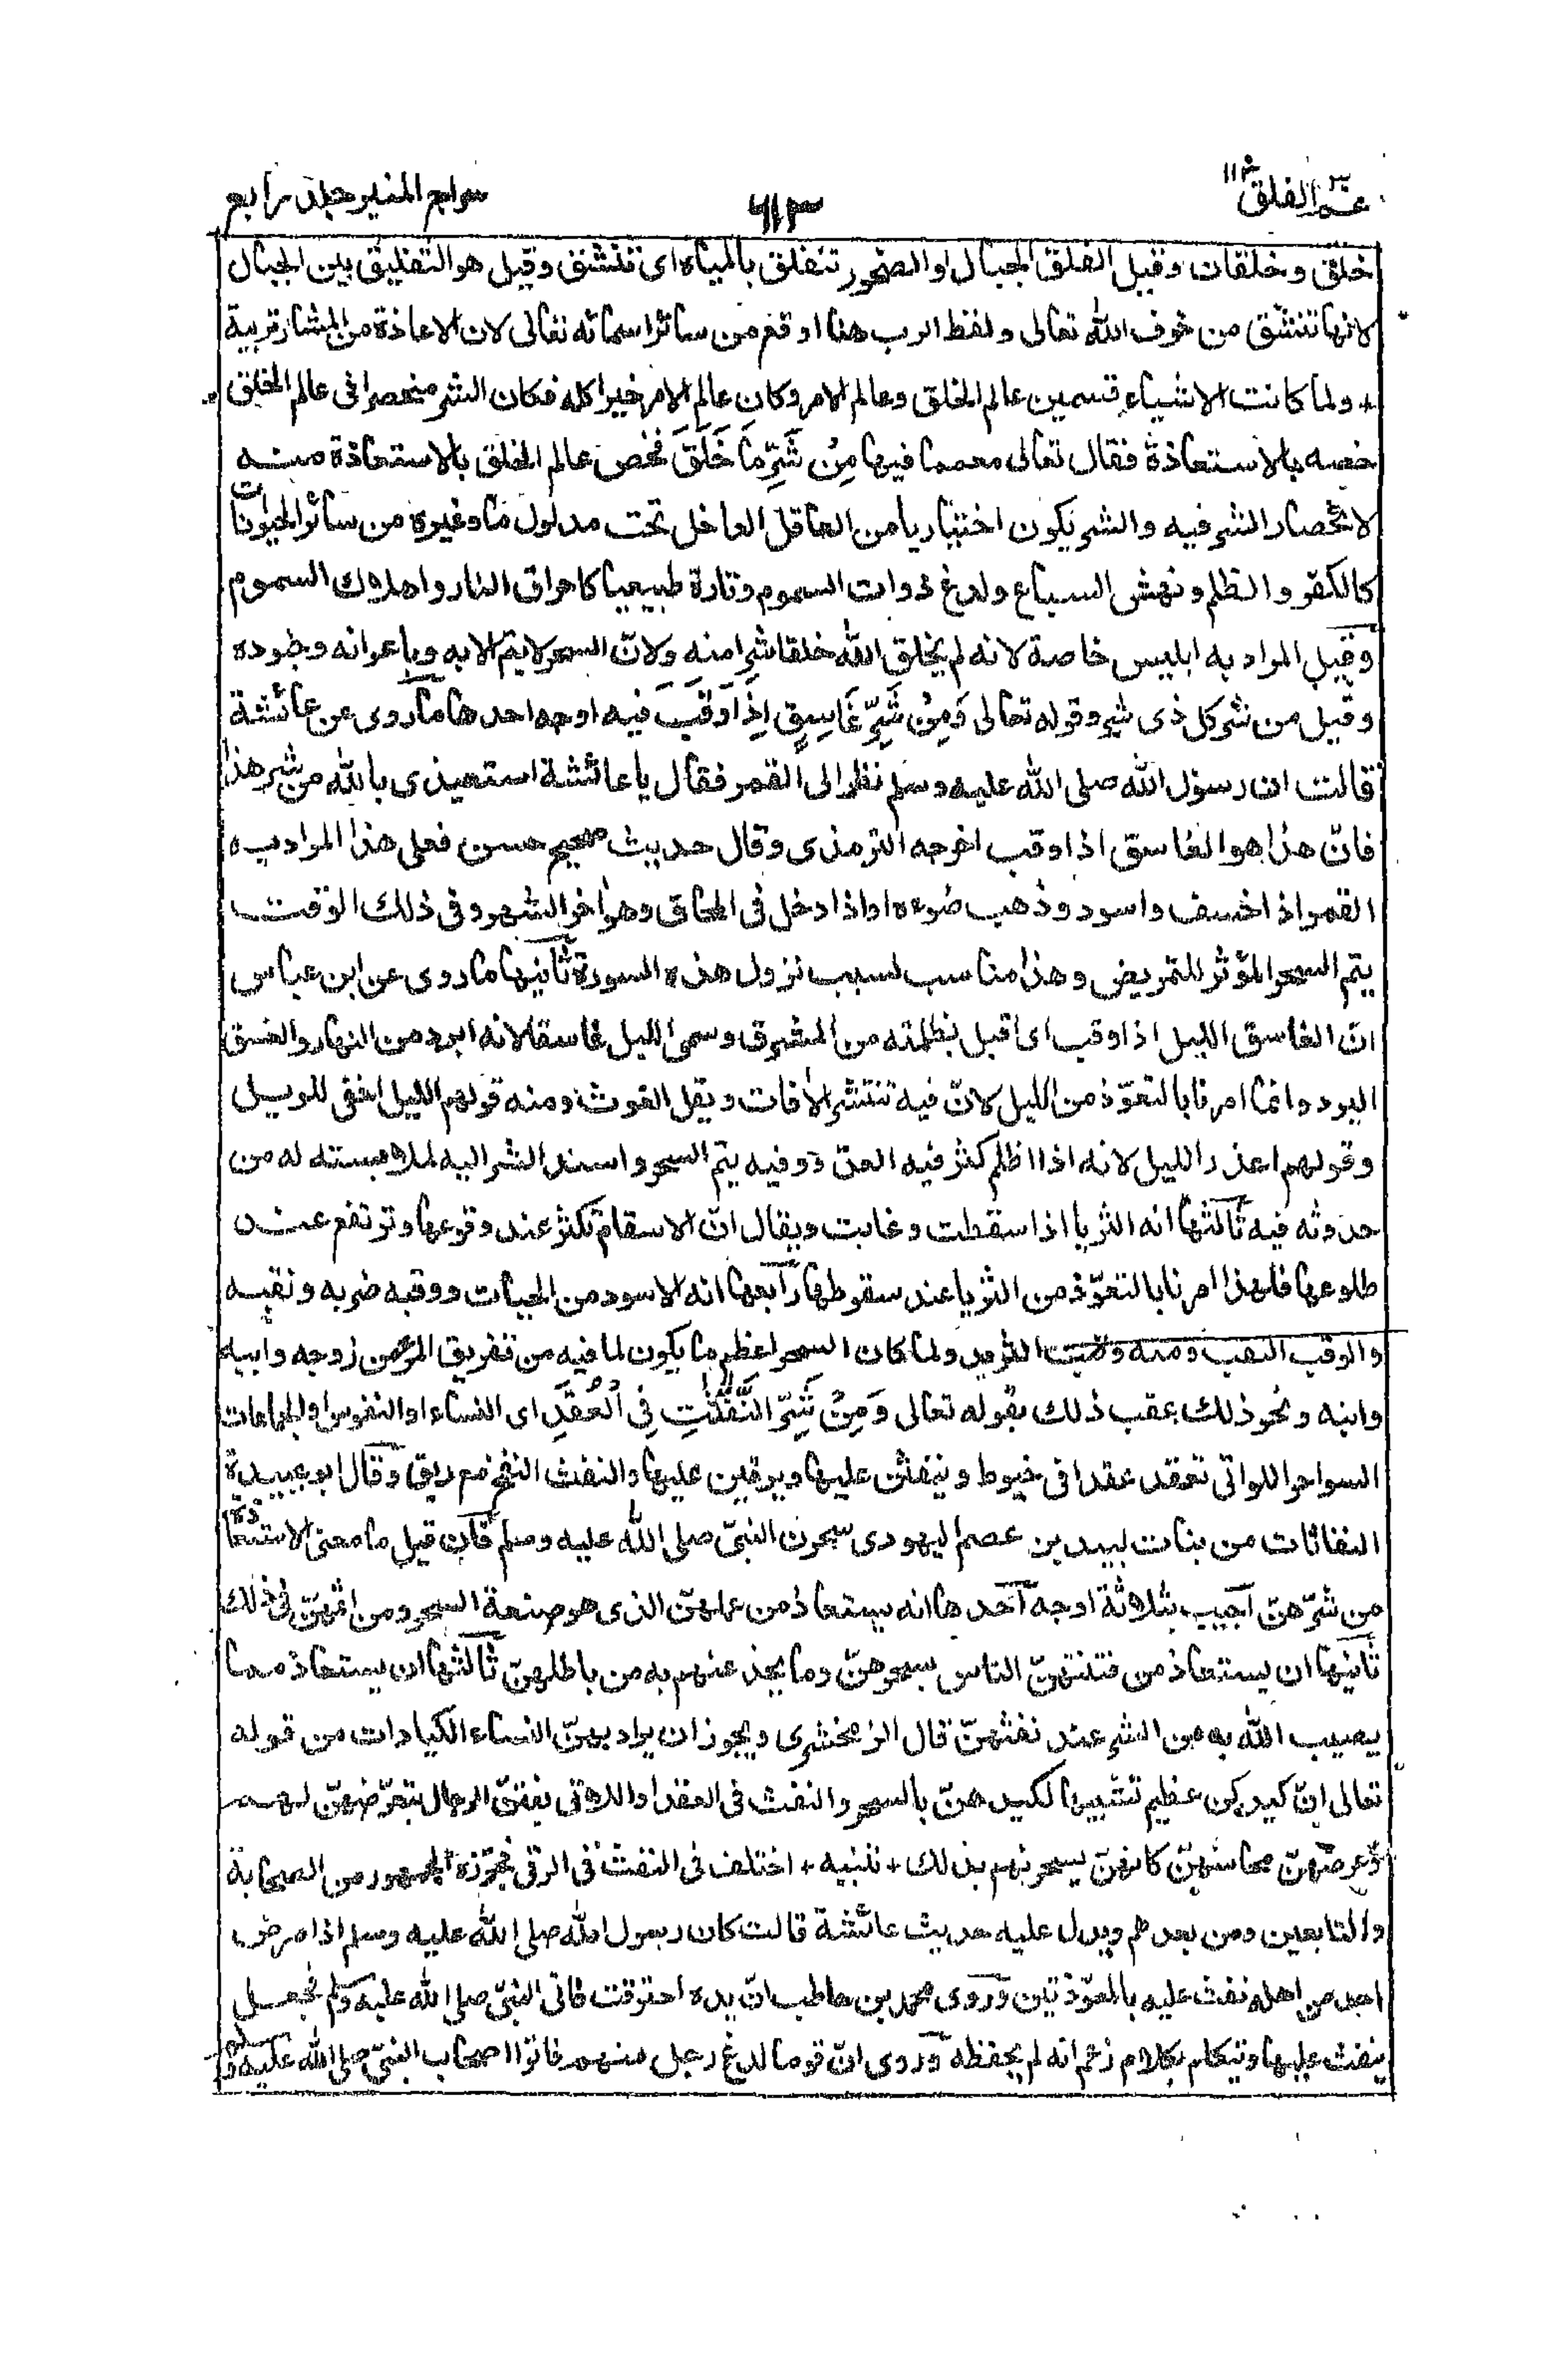 عم الفلق ١١٣
٦١٣
سراج المنير جلد رابع
خلق وخلقان وقيل الفلق الجبال او الصخور تنفلق بالمياه اى تتشقق وقيل هو التفليق بين الجبال
لانها تتشقق من خوف الله تعالى ولفظ الرب هنا اوقع من سائر اسمائه تعالى لان الاعاذة من المضار تربية
+ ولما كانت الاشياء قسمين عالم الخلق وعالم الامر وكان عالم الامر خيرا كله فكان الشر منحصرا فى عالم الخلق
خصه بالاستعاذة فقال تعالى معمما فيها مِنْ شَرِّ مَا خَلَقَ فخص عالم الخلق بالاستعاذة منه
لانحصار الشر فيه والشر يكون اختياريا من العاقل الداخل تحت مدلول ما وغيره من سائر الحيوانات
كالكفر والظلم ونهش السباع ولدغ ذوات السموم وتارة طبيعيا كاحراق النار واهلاك السموم
وقيل المراد به ابليس خاصة لانه لم يخلق الله خلقا شرا منه ولانّ السحر لا يتم الا به وباعوانه وجنوده
وقيل من شر كل ذى شر وقوله تعالى وَمِنْ شَرِّ غَاسِقٍ اِذَا وَقَبَ فيه اوجه احدها ما روى عن عائشة
قالت ان رسول الله صلى الله عليه وسلم نظر الى القمر فقال يا عائشة استعيذى بالله من شر هذا
فانّ هذا هو الغاسق اذا وقب اخرجه الترمذى وقال حديث صحيح حسن فعلى هذا المراد به
القمر اذا خسف واسود وذهب ضوءه او اذا دخل فى المحاق وهو اخر الشهر وفى ذلك الوقت
يتم السحر المؤثر للتمريض وهذا مناسب لسبب نزول هذه السورة ثانيها ما روى عن ابن عباس
انّ الغاسق الليل اذا وقب اى اقبل بظلمته من المشرق وسمى الليل غاسقا لانه ابرد من النهار والغسق
البرد وانما امرنا بالتعوّذ من الليل لانّ فيه تنتشر الأفات ويقل الغوث ومنه قولهم الليل اخفى للويل
وقولهم اعذر الليل لانه اذا اظلم كثر فيه العدوّ وفيه يتم السحر واسند الشر اليه لملابسته له من
حدوثه فيه ثالثها انه الثريا اذا سقطت وغابت ويقال انّ الاسقام تكثر عند وقوعها وترتفع عند
طلوعها فلهذا امرنا بالتعوّذ من الثريا عند سقوطها رابعها انه الاسود من الحيات ووقبه ضربه ونقبه
والوقب النقب ومنه وقبت الثريد ولما كان السحر اعظم ما يكون لما فيه من تفريق المرء من زوجه وابيه
وابنه ونحو ذلك عقب ذلك بقوله تعالى وَمِنْ شَرِّ النَّفّٰثٰتِ فِى الْعُقَدِ اى النساء او النفوس او الجماعات
السواحر اللواتى تعقد عقدا فى خيوط وينفثن عليها ويرقين عليها والنفث النفخ مع ريق وقال ابو عبيدة
النفاثات من بنات لبيد بن عصم اليهودى سحرن النبىّ صلى الله عليه وسلم فان قيل ما معنى الاستعاذة
من شرّهنّ اجيب بثلاثة اوجه احدها انه يستعاذ من عملهنّ الذى هو صنعة السحر ومن اثمهنّ فى ذلك
ثانيها ان يستعاذ من فتنتهنّ الناس بسحرهنّ وما يخدعنهم به من باطلهنّ ثالثها ان يستعاذ مما
يصيب الله به من الشر عند نفثهنّ قال الزمخشرى ويجوز ان يراد بهنّ النساء الكيادات من قوله
تعالى انّ كيدكن عظيم تشبيها لكيدهنّ بالسحر والنفث فى العقد او اللاتى يفتنّ الرجال بتعرّضهنّ لهم
وعرضهنّ محاسنهنّ كانهنّ يسحرنهم بذلك + تنبيه + اختلف فى النفث فى الرقى فجوّزه الجمهور من الصحابة
والتابعين ومن بعدهم ويدل عليه حديث عائشة قالت كان رسول الله صلى الله عليه وسلم اذا مرض
احد من اهله نفث عليه بالمعوّذتين وروى محمد بن حاطب انّ يده احترقت فاتى النبىّ صلى الله عليه وسلم فجعل
ينفث عليها وتيكلم بكلام زعم انه لم يحفظه وروى انّ قوما لدغ رجل منهم فاتوا اصحاب النبىّ صلى الله عليه وسلم